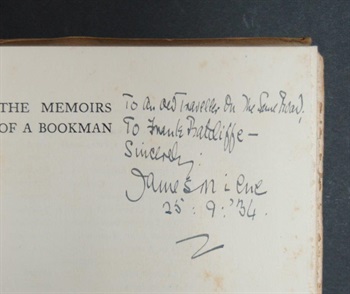 THE MEMOIRS
OF A BOOKMAN
To an old Traveller On The Same Road,
To Frank Ratcliffe –
Sincerely:
James Milne
25. 9. '34.